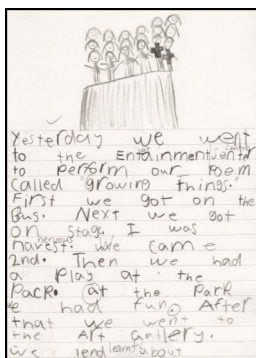 Yesterday we went
to the Entainment senter
to perform our Poem
called "growing things."
First we got on the
Bus. Next we got
on stage. I was
nervous
navest. We came
2nd. Then we had
a Play at the
Pack. at the Park
we had fun. After
that we went to
the Art Gallery.
we lend learnt about